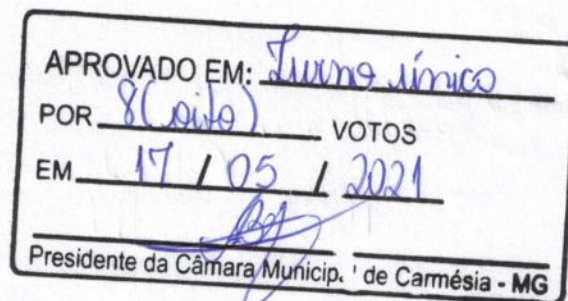 APROVADO EM: Turno único
POR 8 (oito) VOTOS
EM 17 / 05 / 2021
Presidente da Câmara Municip. ' de Carmésia - MG